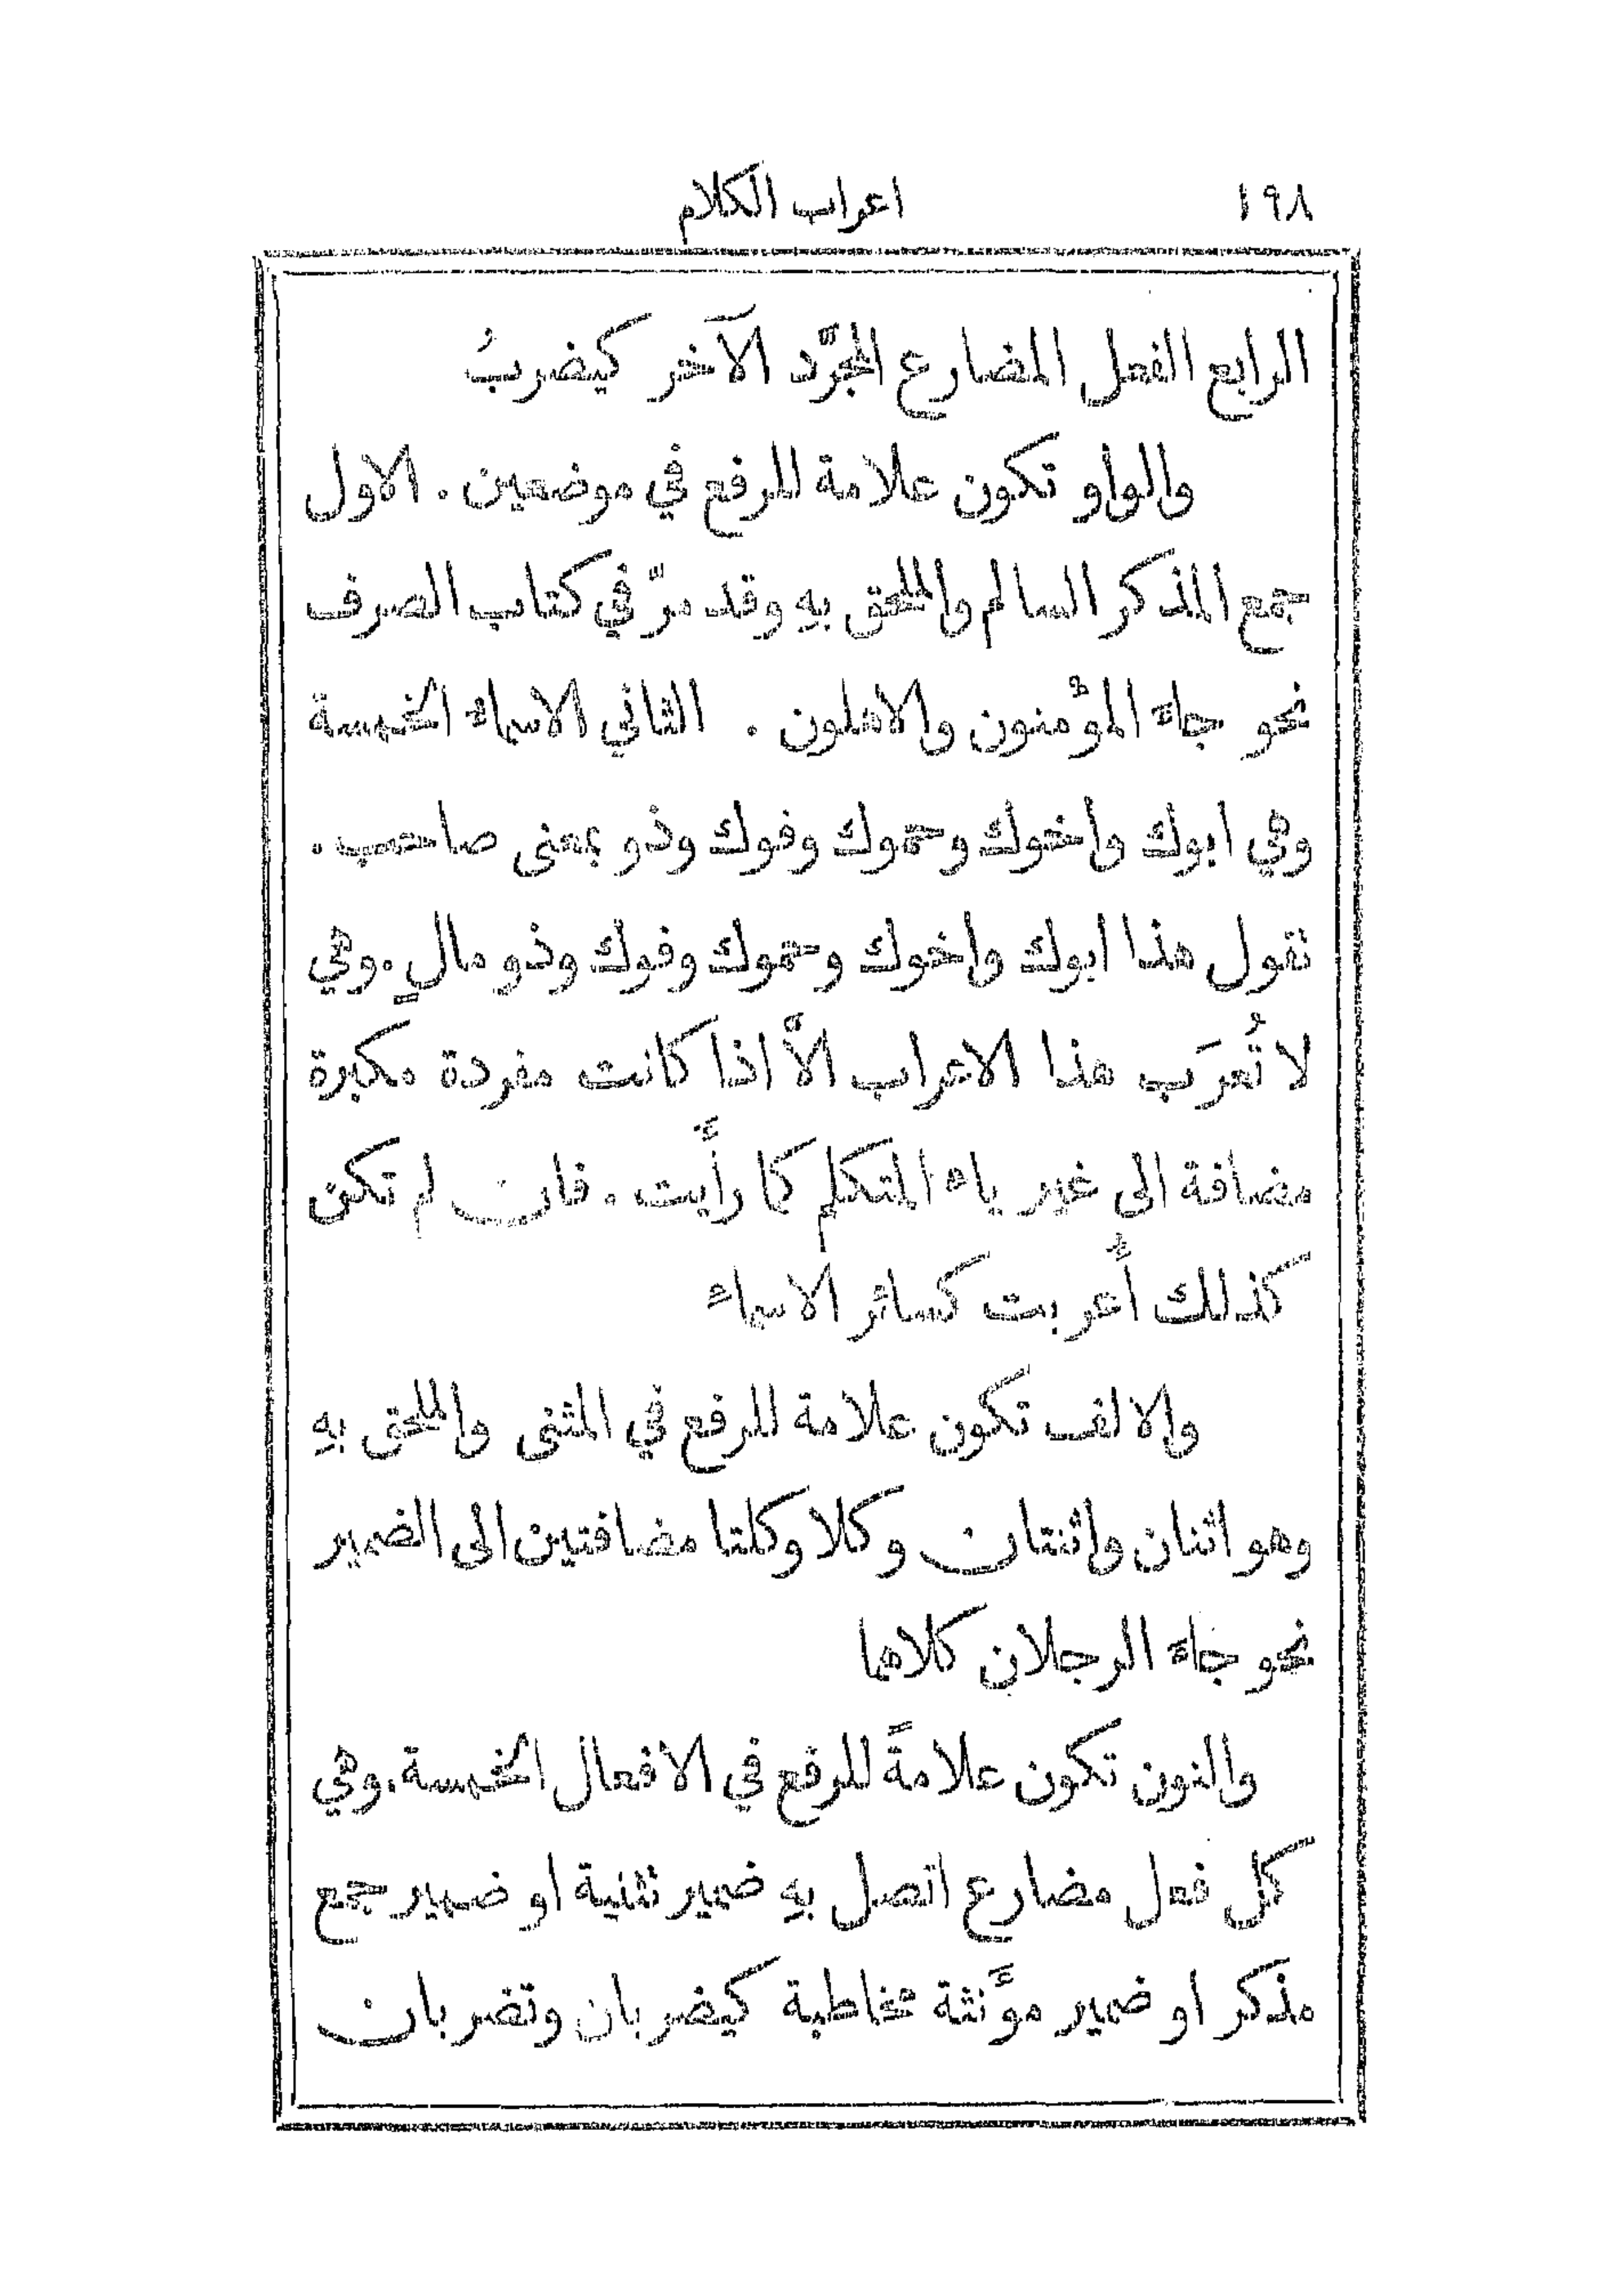 ١٩٨ اعراب الكلام
الرابع الفعل المضارع المجرَّد الآخر كيضربُ
والواو تكون علامة للرفع في موضعين . الاول
جمع المذكر السالم والملحق بهِ وقد مرّ في كتاب الصرف
نحو جاءَ المؤْمنون والاهلون . الثاني الاسماء الخمسة
وهي ابوك واخوك وحموك وفوك وذو بمعنى صاحب .
تقول هذا ابوك واخوك وحموك وفوك وذو مالٍ . وهي
لا تُعرَب هذا الاعراب الاَّ اذا كانت مفردة مكبرة
مضافة الى غير ياء المتكلم كما رأَيت . فان لم تكن
كذلك أُعربت كسائر الاسماء
والالف تكون علامة للرفع في المثنى والملحق بهِ
وهو اثنان واثنتان وكلا وكلتا مضافتين الى الضمير
نحو جاءَ الرجلان كلاهما
والنون تكون علامةً للرفع في الافعال الخمسة . وهي
كل فعل مضارع اتصل بهِ ضمير تثنية او ضمير جمع
مذكر او ضمير مؤَنثة مخاطبة كيضربان وتضربان